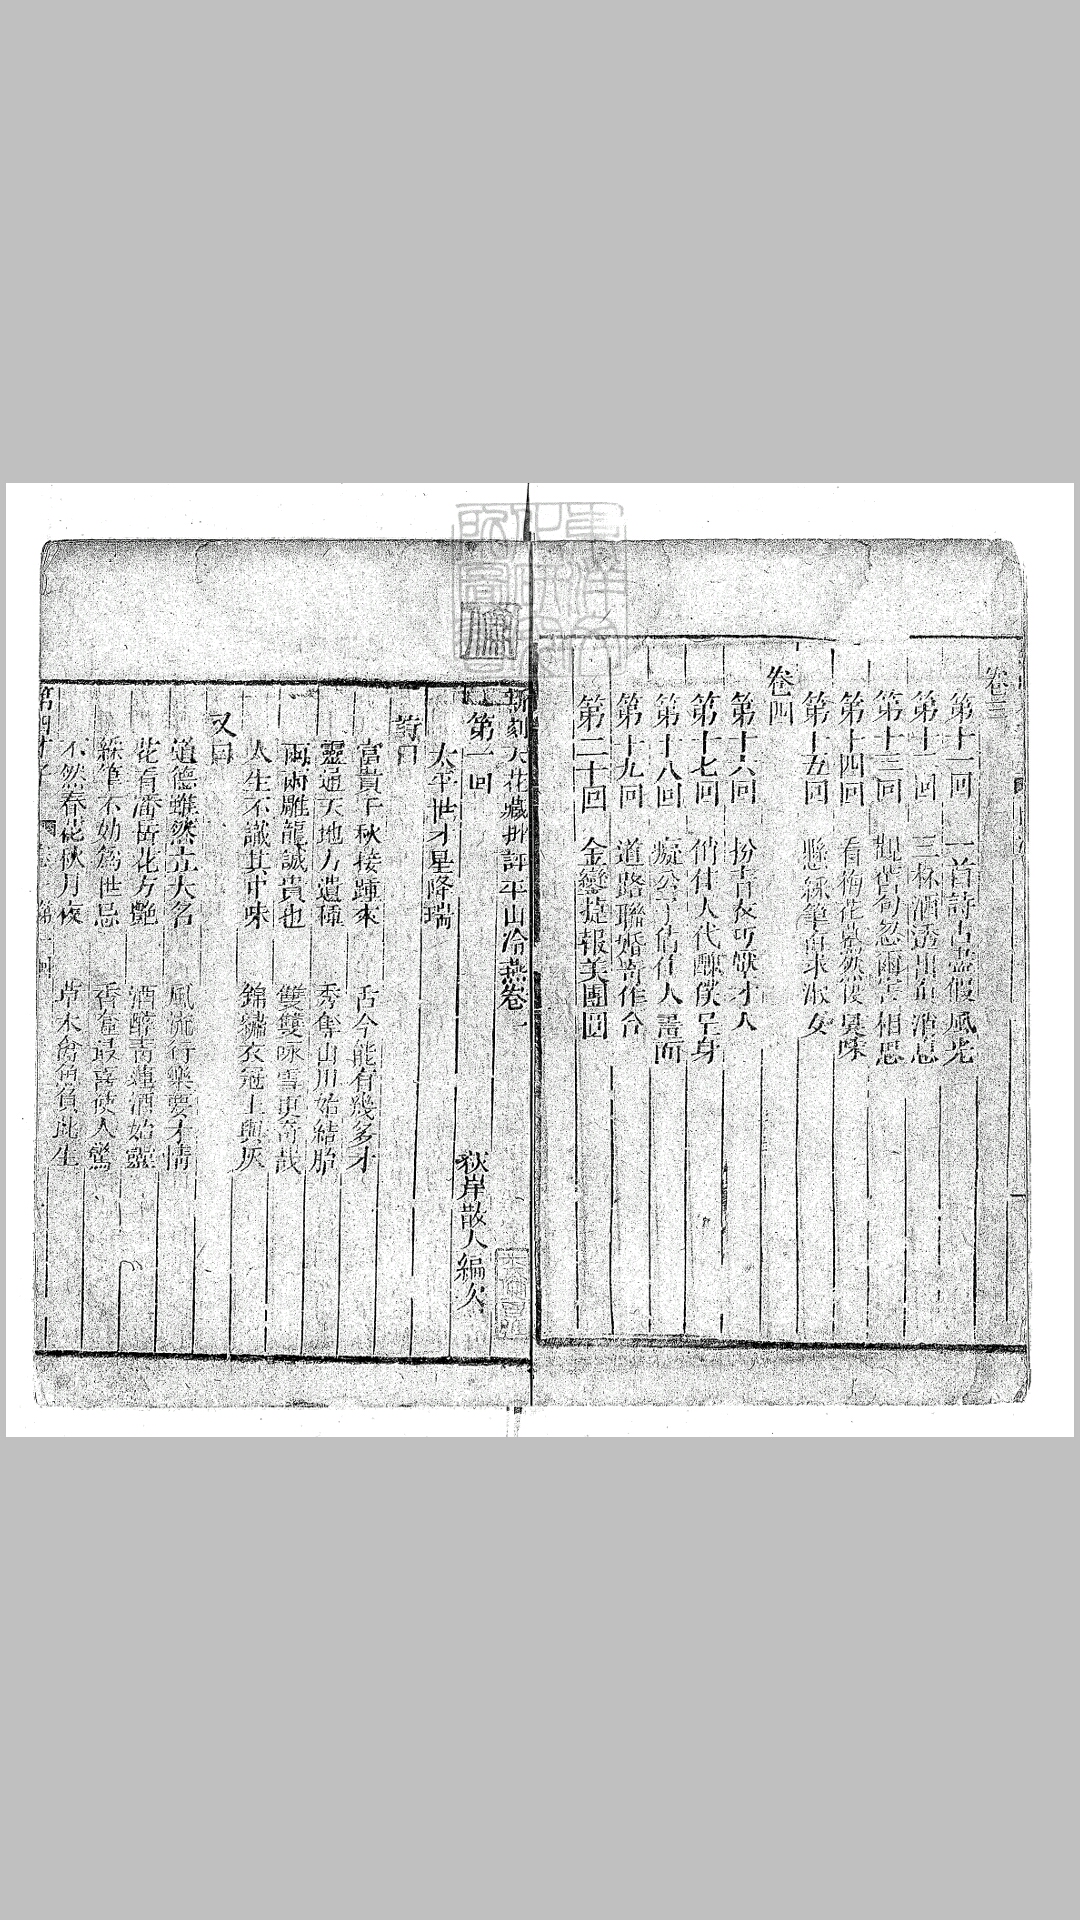 卷三
第十一回　一首詩占盡假風光
第十二回　三杯酒透出真消息
第十三回　觀舊句忽爾害相思
第十四回　看梅花默然後異味
第十五回　懸綵筆再求淑女
卷四
第十六回　扮青衣巧壓才人
第十七回　他人代醜僕呈身
第十八回　癡公子倩佳人畫面
第十九回　道路聯婚奇作合
第二十回　金鑾捷報美團圓
新刻天花藏批評平山冷燕卷一
荻岸散人編次
第一回
太平世才星降瑞
詩曰
富貴千秋接踵來　古今能有幾多才
靈通天地方遺種　秀奪山川始結胎
兩兩雕龍誠貴也　雙雙咏雪更奇哉
人生不識其中味　錦繡衣冠土與灰
又曰
道德雖然立大名　風流行樂要才情
花看潘岳花方艷　酒醉青蓮酒始靈
綵筆不妨為世忌　香奩最喜使人驚
不然春花秋月夜　草木禽魚負此生
第四才子